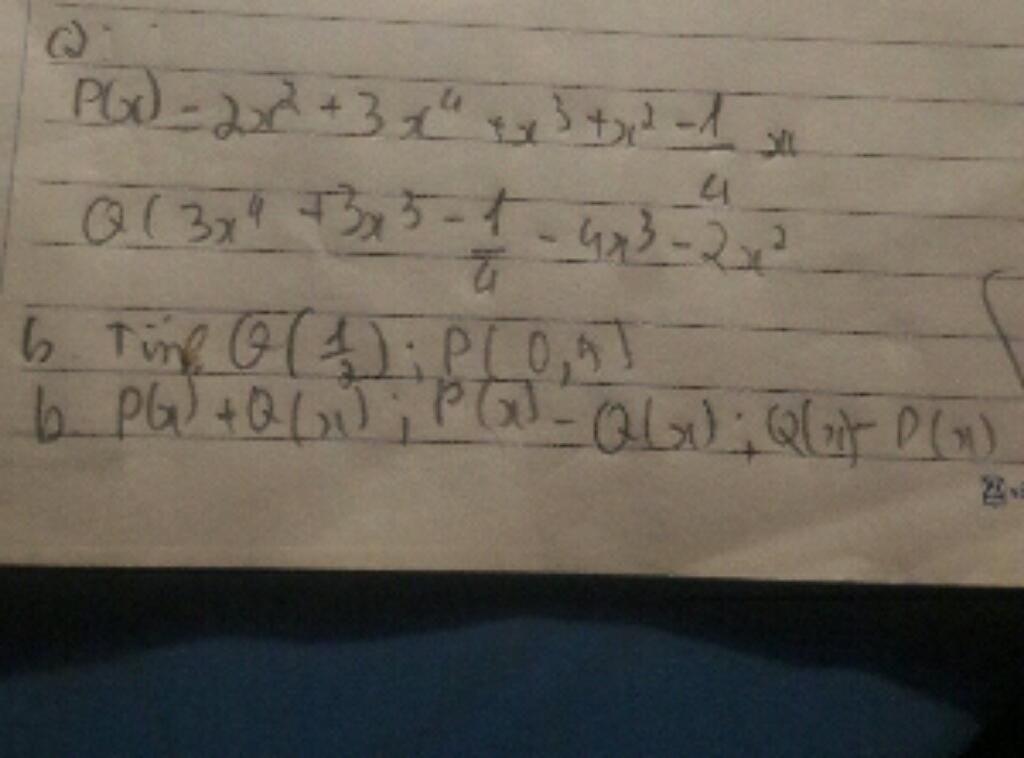 a)
P(x) = 2x² + 3x⁴ + x³ + x² - 1/4 x
Q( 3x⁴ + 3x³ - 1/4 - 4x³ - 2x²
b Tìm Q(1/2); P( 0,5)
b P(x) + Q(x); P(x) - Q(x); Q(x) - P(x)